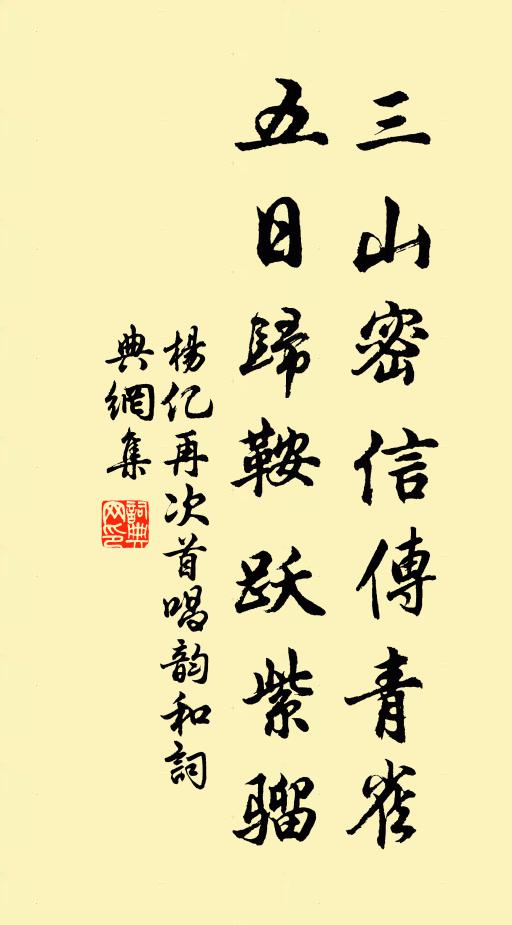 三山密信傳青雀
五日歸鞍跃紫骝
楊亿再次首唱韵和詞
典網集
詞典网印